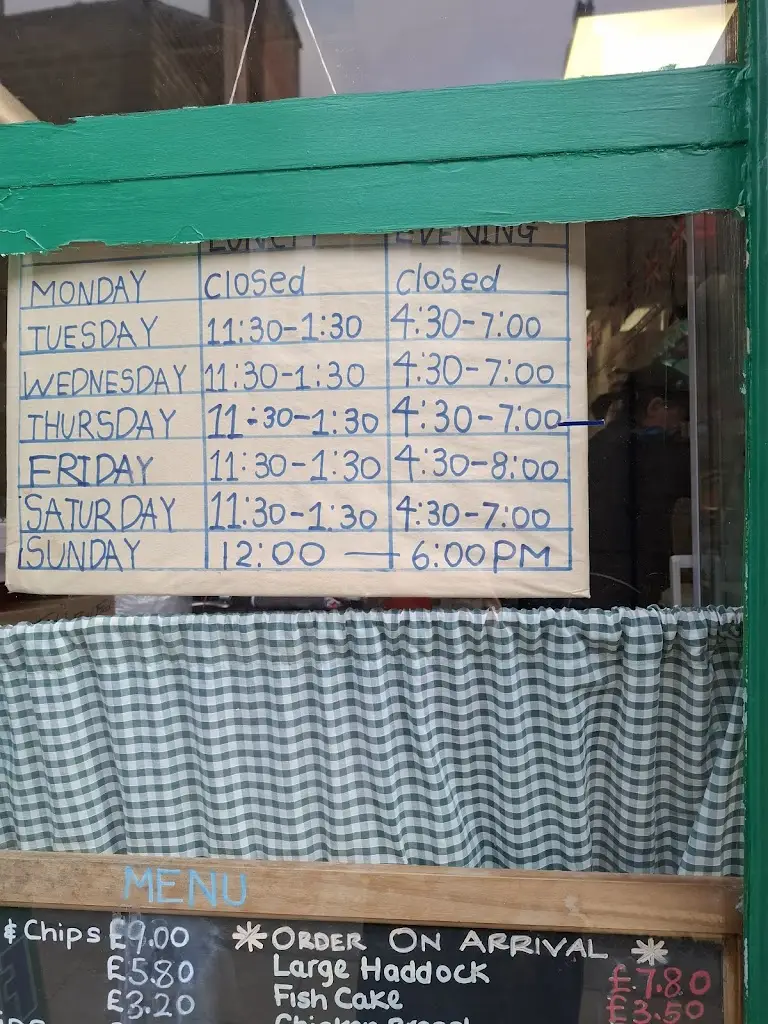 LUNCH EVENING
MONDAY closed closed
TUESDAY 11:30-1:30 4:30-7:00
WEDNESDAY 11:30-1:30 4:30-7:00
THURSDAY 11:30-1:30 4:30-7:00
FRIDAY 11:30-1:30 4:30-8:00
SATURDAY 11:30-1:30 4:30-7:00
SUNDAY 12:00 — 6:00PM
MENU
& Chips £9.00
£5.80
£3.20
*ORDER ON ARRIVAL *
Large Haddock £7.80
Fish Cake £3.50
Chicken